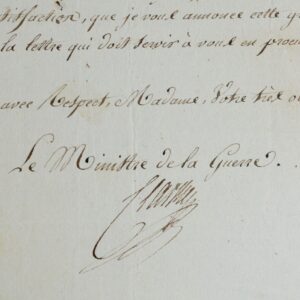 tisfaction, que je vous annonce cette g
la lettre qui doit servir à vous en procu
avec Respect, Madame, Votre très o
Le Ministre de la Guerre.